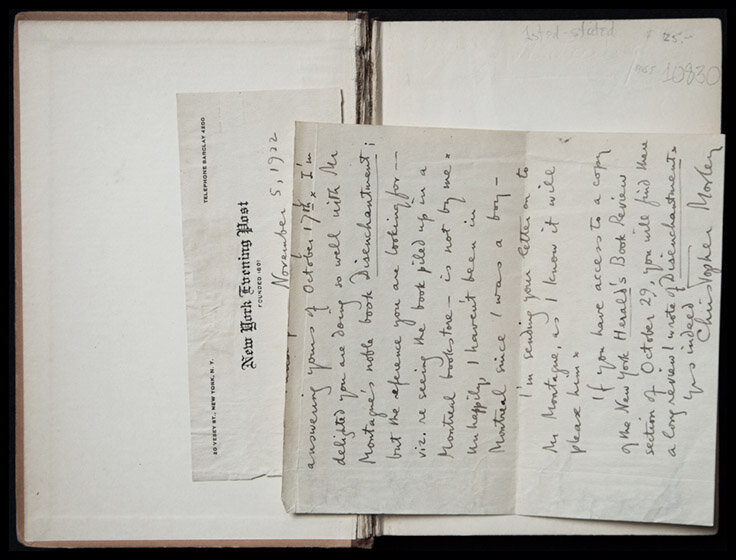 1st ed - stated $ 25.-
10830
TELEPHONE BARCLAY 4200
New York Evening Post
FOUNDED 1801
20 VESEY ST., NEW YORK, N. Y.
November 5, 1922
answering yours of October 17th x I'm
delighted you are doing so well with Mr
Montague's noble book Disenchantment;
but the reference you are looking for —
viz. re seeing the book piled up in a
Montreal bookstore — is not by me x
Unhappily, I haven't been in
Montreal since I was a boy —
I'm sending your letter on to
Mr Montague, as I know it will
please him x
If you have access to a copy
of the New York Herald's Book Review
section of October 29, you will find there
a long review I wrote of Disenchantment x
Yrs indeed
Christopher Morley